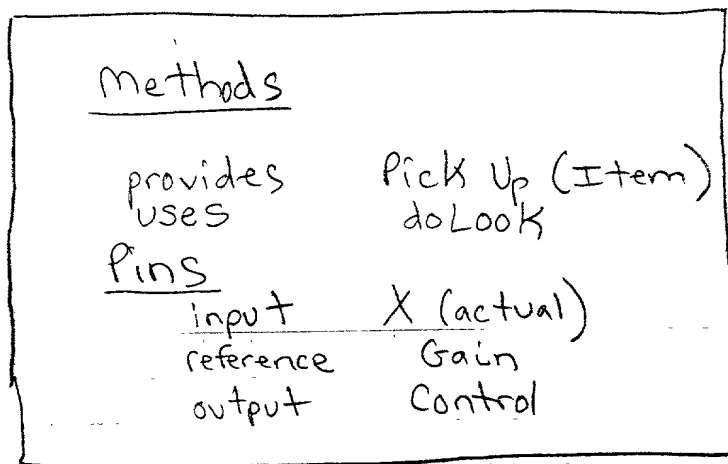 Methods
provides Pick Up (Item)
uses doLook
Pins
input X (actual)
reference Gain
output Control